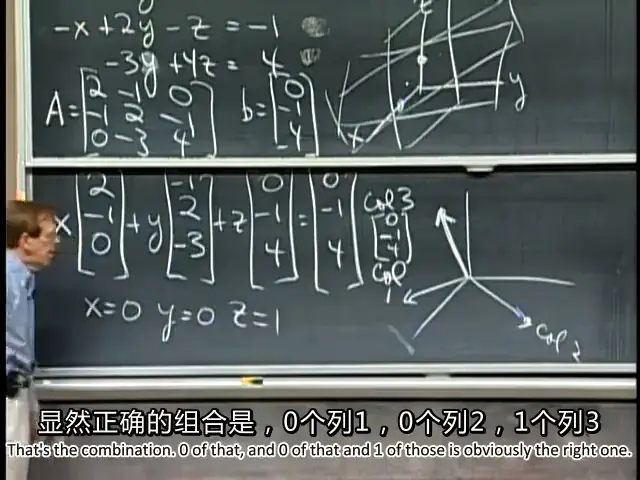 -x+2y-z=-1
-3y+4z=4
A=[2 -1 0; -1 2 -1; 0 -3 4] b=[0; -1; 4]
z
y
x
x[2; -1; 0]+y[-1; 2; -3]+z[0; -1; 4]=[0; -1; 4]
col 3
[0; -1; 4]
col
1
col 2
x=0 y=0 z=1
显然正确的组合是，0个列1，0个列2，1个列3
That's the combination. 0 of that, and 0 of that and 1 of those is obviously the right one.